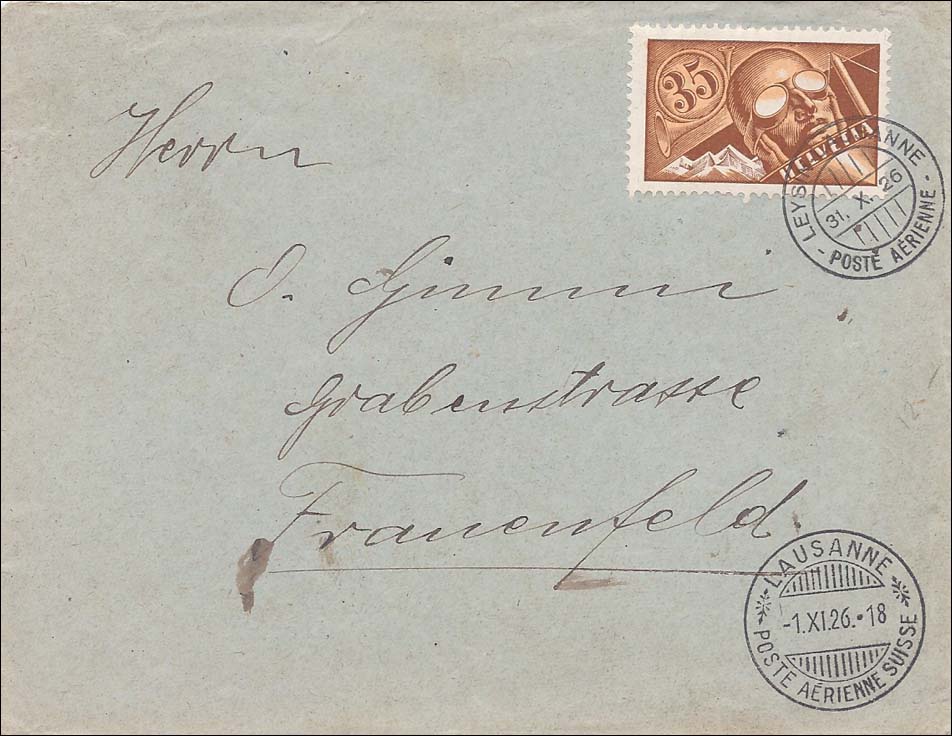 35
HELVETIA
LEYSIN - LAUSANNE
31. X. 26
- POSTE AÉRIENNE -
Herrn
O. Gimmi
Grabenstrasse
Frauenfeld
LAUSANNE
-1.XI.26.•18
POSTE AÉRIENNE SUISSE